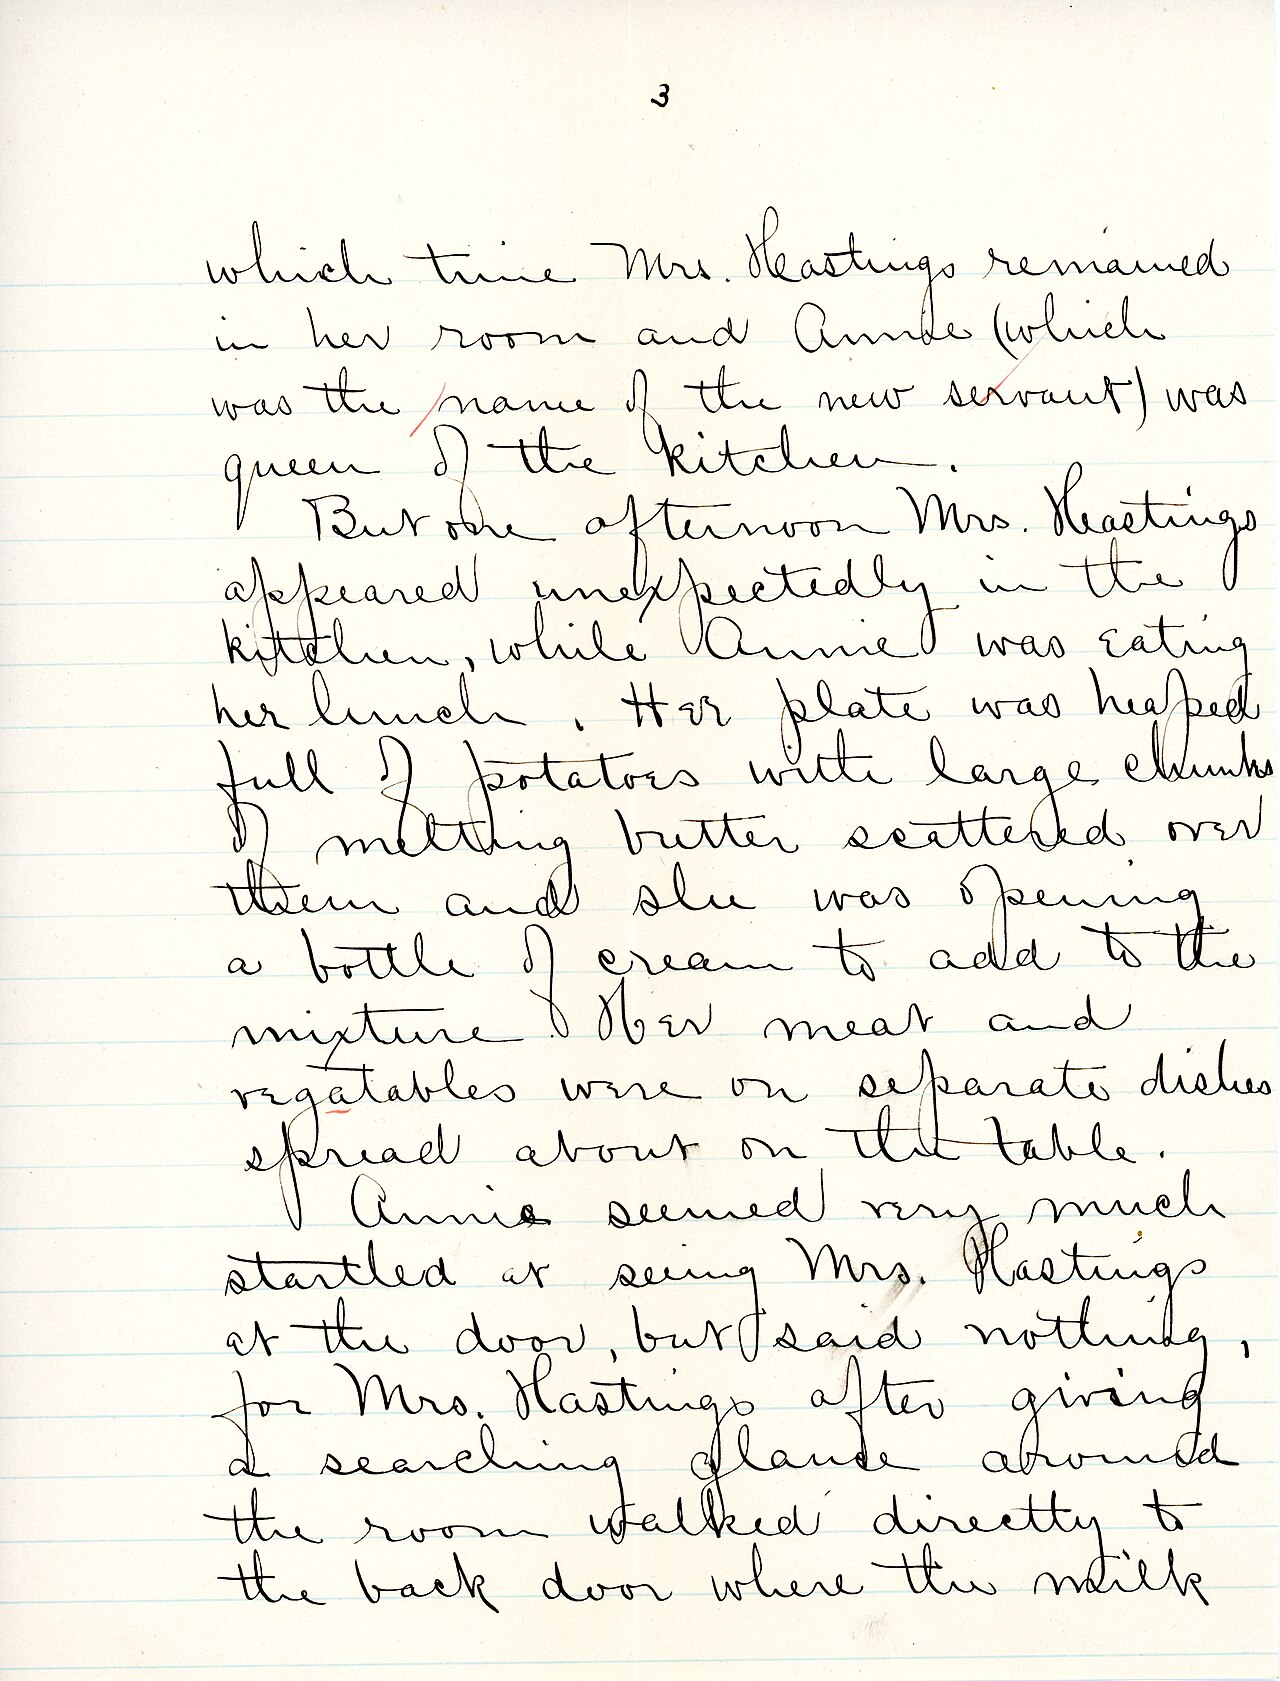 3
which time Mrs. Heastings remained
in her room and Annie (which
was the name of the new servant) was
queen of the kitchen.
But one afternoon Mrs. Heastings
appeared unexpectedly in the
kitchen, while Annie was eating
her lunch. Her plate was heaped
full of potatoes with large chunks
of melting butter scattered over
them and she was opening
a bottle of cream to add to the
mixture Her meat and
vegatables were on separate dishes
spread about on the table.
Annie seemed very much
startled at seeing Mrs. Hastings
at the door, but said nothing,
for Mrs. Hastings after giving
a searching glance around
the room walked directly to
the back door where the milk